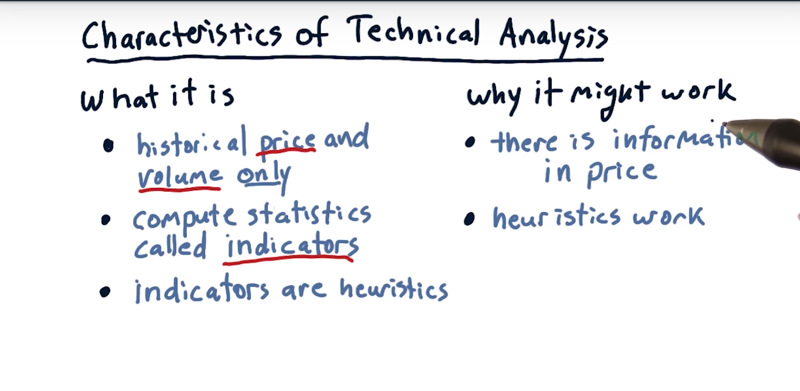 Characteristics of Technical Analysis
What it is
• historical price and
volume only
• compute statistics
called indicators
• indicators are heuristics
why it might work
• there is information
in price
• heuristics work